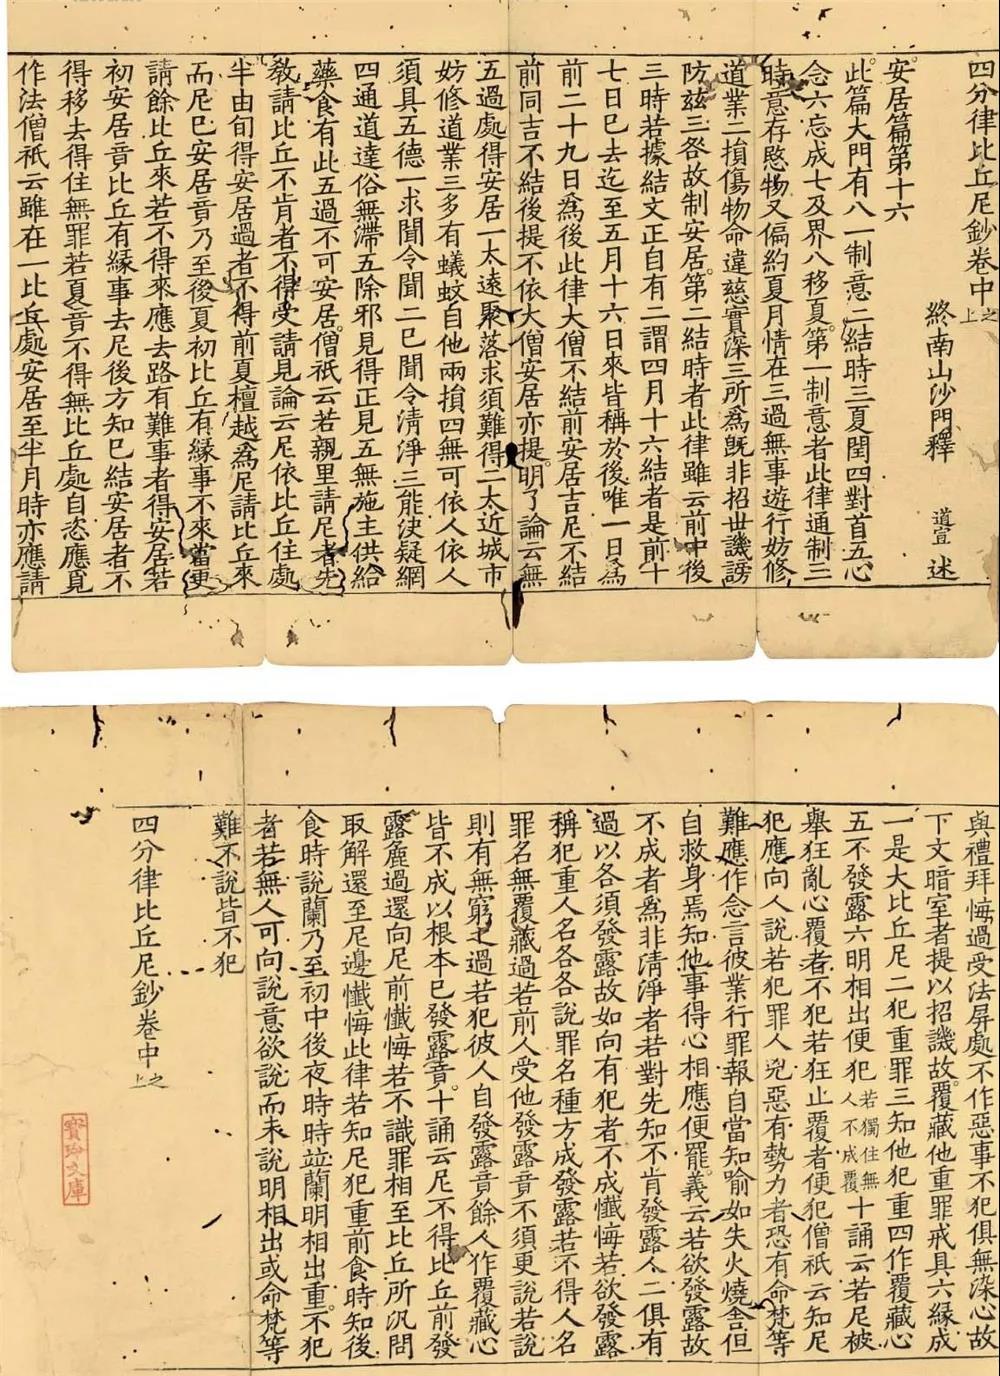 四分律比丘尼鈔卷中之上
終南山沙門釋 道宣 述
安居篇第十六
此篇大門有八一制意二結時三夏閏四對首五心
念六忘成七及界八移夏第一制意者此律通制三
時意存愍物又偏約夏月情在三過無事遊行妨修
道業二損傷物命違慈實深三所為旣非招世譏謗
防茲三咎故制安居第二結時者此律雖云前中後
三時若據結文正自有二謂四月十六結者是前十
七日已去迄至五月十六日來皆稱於後唯一日為
前二十九日為後此律大僧不結前安居吉尼不結
前同吉不結後提不依大僧安居亦提明了論云無
五過處得安居一太遠聚落求須難得二太近城市
妨修道業三多有蟻蚊自他兩損四無可依人依人
須具五德一求聞令聞二已聞令清淨三能決疑網
四通道達俗無滯五除邪見得正見五無施主供給
藥食有此五過不可安居僧祇云若親里請尼者先
敎請比丘不肯者不得受請見論云尼依比丘住處
半由旬得安居過者不得前夏檀越為尼請比丘來
而尼已安居竟乃至後夏初比丘有緣事不來當更
請餘比丘來若不得來應去路有難事者得安居若
初安居竟比丘有緣事去尼後方知已結安居者不
得移去得住無罪若夏竟不得無比丘處自恣應覓
作法僧祇云雖在一比丘處安居至半月時亦應請
與禮拜悔過受法屏處不作惡事不犯俱無染心故
下文暗室者提以招譏故覆藏他重罪戒具六緣成
一是大比丘尼二犯重罪三知他犯重四作覆藏心
五不發露六明相出便犯若獨住無人不成覆十誦云若尼被
舉狂亂心覆者不犯若狂止覆者便犯僧祇云知尼
犯應向人說若犯罪人兇惡有勢力者恐有命梵等
難應作念言彼業行罪報自當知喻如失火燒舍但
自救身焉知他事得心相應便罷義云若欲發露故
不成者為非清淨者若對先知不肯發露人二俱有
過以各須發露故如向有犯者不成懺悔若欲發露
稱犯重人名各各說罪名種方成發露若不得人名
罪名無覆藏過若前人受他發露竟不須更說若說
則有無窮之過若犯彼人自發露竟餘人作覆藏心
皆不成以根本已發露竟十誦云尼不得比丘前發
露麄過還向尼前懺悔若不識罪相至比丘所汎問
取解還至尼邊懺悔此律若知尼犯重前食時知後
食時說蘭乃至初中後夜時時並蘭明相出重不犯
者若無人可向說意欲說而未說明相出或命梵等
難不說皆不犯
四分律比丘尼鈔卷中之上
寶玲文庫